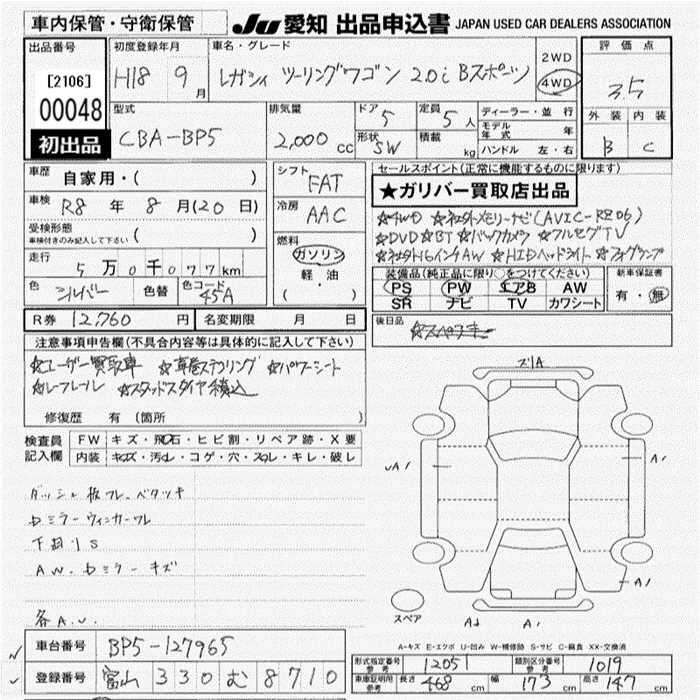 車内保管・守衛保管
JU 愛知 出品申込書 JAPAN USED CAR DEALERS ASSOCIATION
出品番号
[2106]
00048
初出品
初度登録年月
H18 9月
車名・グレード
レガシィ ツーリングワゴン 2.0i Bスポーツ
2WD
4WD
評価点
3.5
外装 内装
B C
型式
CBA-BP5
排気量
2,000 cc
ドア 5
形状 SW
定員 5人
積載 kg
ディーラー・並行
モデル年式 年
ハンドル 左・右
車歴 自家用・( )
車検 R8年 8月(20日)
受検形態
車検付きのみ記入して下さい ( )
走行 5万0千077km
色 シルバー 色替 色コード 45A
シフト FAT
冷房 AAC
燃料
ガソリン
軽・油
( )
セールスポイント(正常に機能するものに限ります)
★ガリバー買取店出品
☆4WD ☆社外メモリーナビ(AVIC-RZ06)
☆DVD☆BT☆バックカメラ ☆フルセグTV
☆社外16インチAW ☆HIDヘッドライト ☆フォグランプ
装備品(純正品に限り○をつけてください)
PS PW エアB AW
SR ナビ TV カワシート
新車保証書
有・無
R券 12,760円 名変期限 月 日
後日品
☆スペアキー
注意事項申告欄(不具合内容等は具体的に記入して下さい)
☆ユーザー買取車 ☆革巻ステアリング ☆パワーシート
☆ルーフレール ☆スタッドレスタイヤ積込
修復歴 有 (箇所 )
検査員記入欄
FW キズ・飛石・ヒビ割・リペア跡・X要
内装 キズ・汚れ・コゲ・穴・スレ・キレ・破レ
ダッシュ板フレ、ベタツキ
ミラーウィンカーワレ
下廻りS
AW、ミラーキズ
各A.U.
ズリA
A1
A1
A1
A1
スペア
A-キズ E-エクボ U-凹み W-補修跡 S-サビ C-腐食 XX-交換済
車台番号 BP5-127965
登録番号 富山 330 む 8710
形式指定番号 参考 12051
類別区分番号 参考 1019
車庫証明用 参考 長さ 468cm 幅 173cm 高さ 147cm